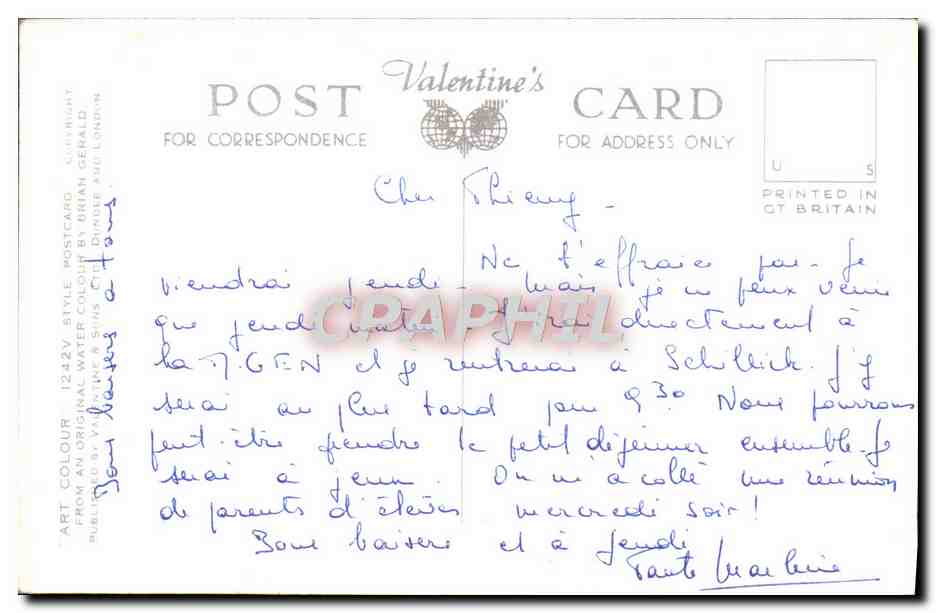 Valentine's
POST CARD
FOR CORRESPONDENCE
FOR ADDRESS ONLY
U S
PRINTED IN
GT BRITAIN
Cher Thierry -
Ne t'effraie pas - Je
viendrai jeudi - mais je ne peux venir
que jeudi matin. J'irai directement à
la MGEN et je rentrerai à Schillick. J'y
serai au plus tard pour 9 30 Nous pourrons
peut-être prendre le petit déjeuner ensemble - Je
serai à jeun. On m'a collé une réunion
de parents d'élèves mercredi soir!
Bons baisers et à jeudi
Tante
Bons baisers à tous.
ART COLOUR 1242V STYLE POSTCARD COPYRIGHT
FROM AN ORIGINAL WATER COLOUR BY BRIAN GERALD
PUBLISHED BY VALENTINE & SONS LTD. DUNDEE AND LONDON
CPAPHIL